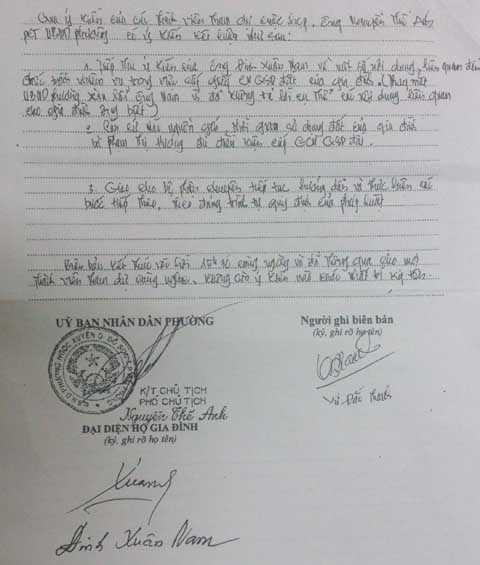 Qua ý kiến của các thành viên tham dự cuộc họp, Ông Nguyễn Thế Anh
PCT UBND phường có ý kiến kết luận như sau:
1. Tiếp thu ý kiến của Ông Đinh Xuân Nam về một số nội dung liên quan đến
trong việc cấp giấy CNQSD đất của gia đình. (Thay mặt
UBND phường xin lỗi Ông Nam vì đã không trả lời cụ thể các nội dung liên quan
cho gia đình ông biết)
2. Căn cứ vào nguồn gốc, thời gian sử dụng đất của gia đình
bà Phạm Thị Hương đủ điều kiện cấp GCNQSD đất.
3. Giao cho bộ phận chuyên tiếp tục hướng dẫn và thực hiện các
bước tiếp theo, theo đúng trình tự quy định của pháp luật
Biên bản kết thúc vào hồi 10h cùng ngày và đã thông qua cho mọi
thành viên tham dự cùng nghe, không còn ý kiến nào khác nhất trí ký tên.
UỶ BAN NHÂN DÂN PHƯỜNG
Người ghi biên bản
(ký, ghi rõ họ tên)
K/T CHỦ TỊCH
PHÓ CHỦ TỊCH
Nguyễn Thế Anh
Vũ Đắc
ĐẠI DIỆN HỘ GIA ĐÌNH
(ký, ghi rõ họ tên)
Đinh Xuân Nam